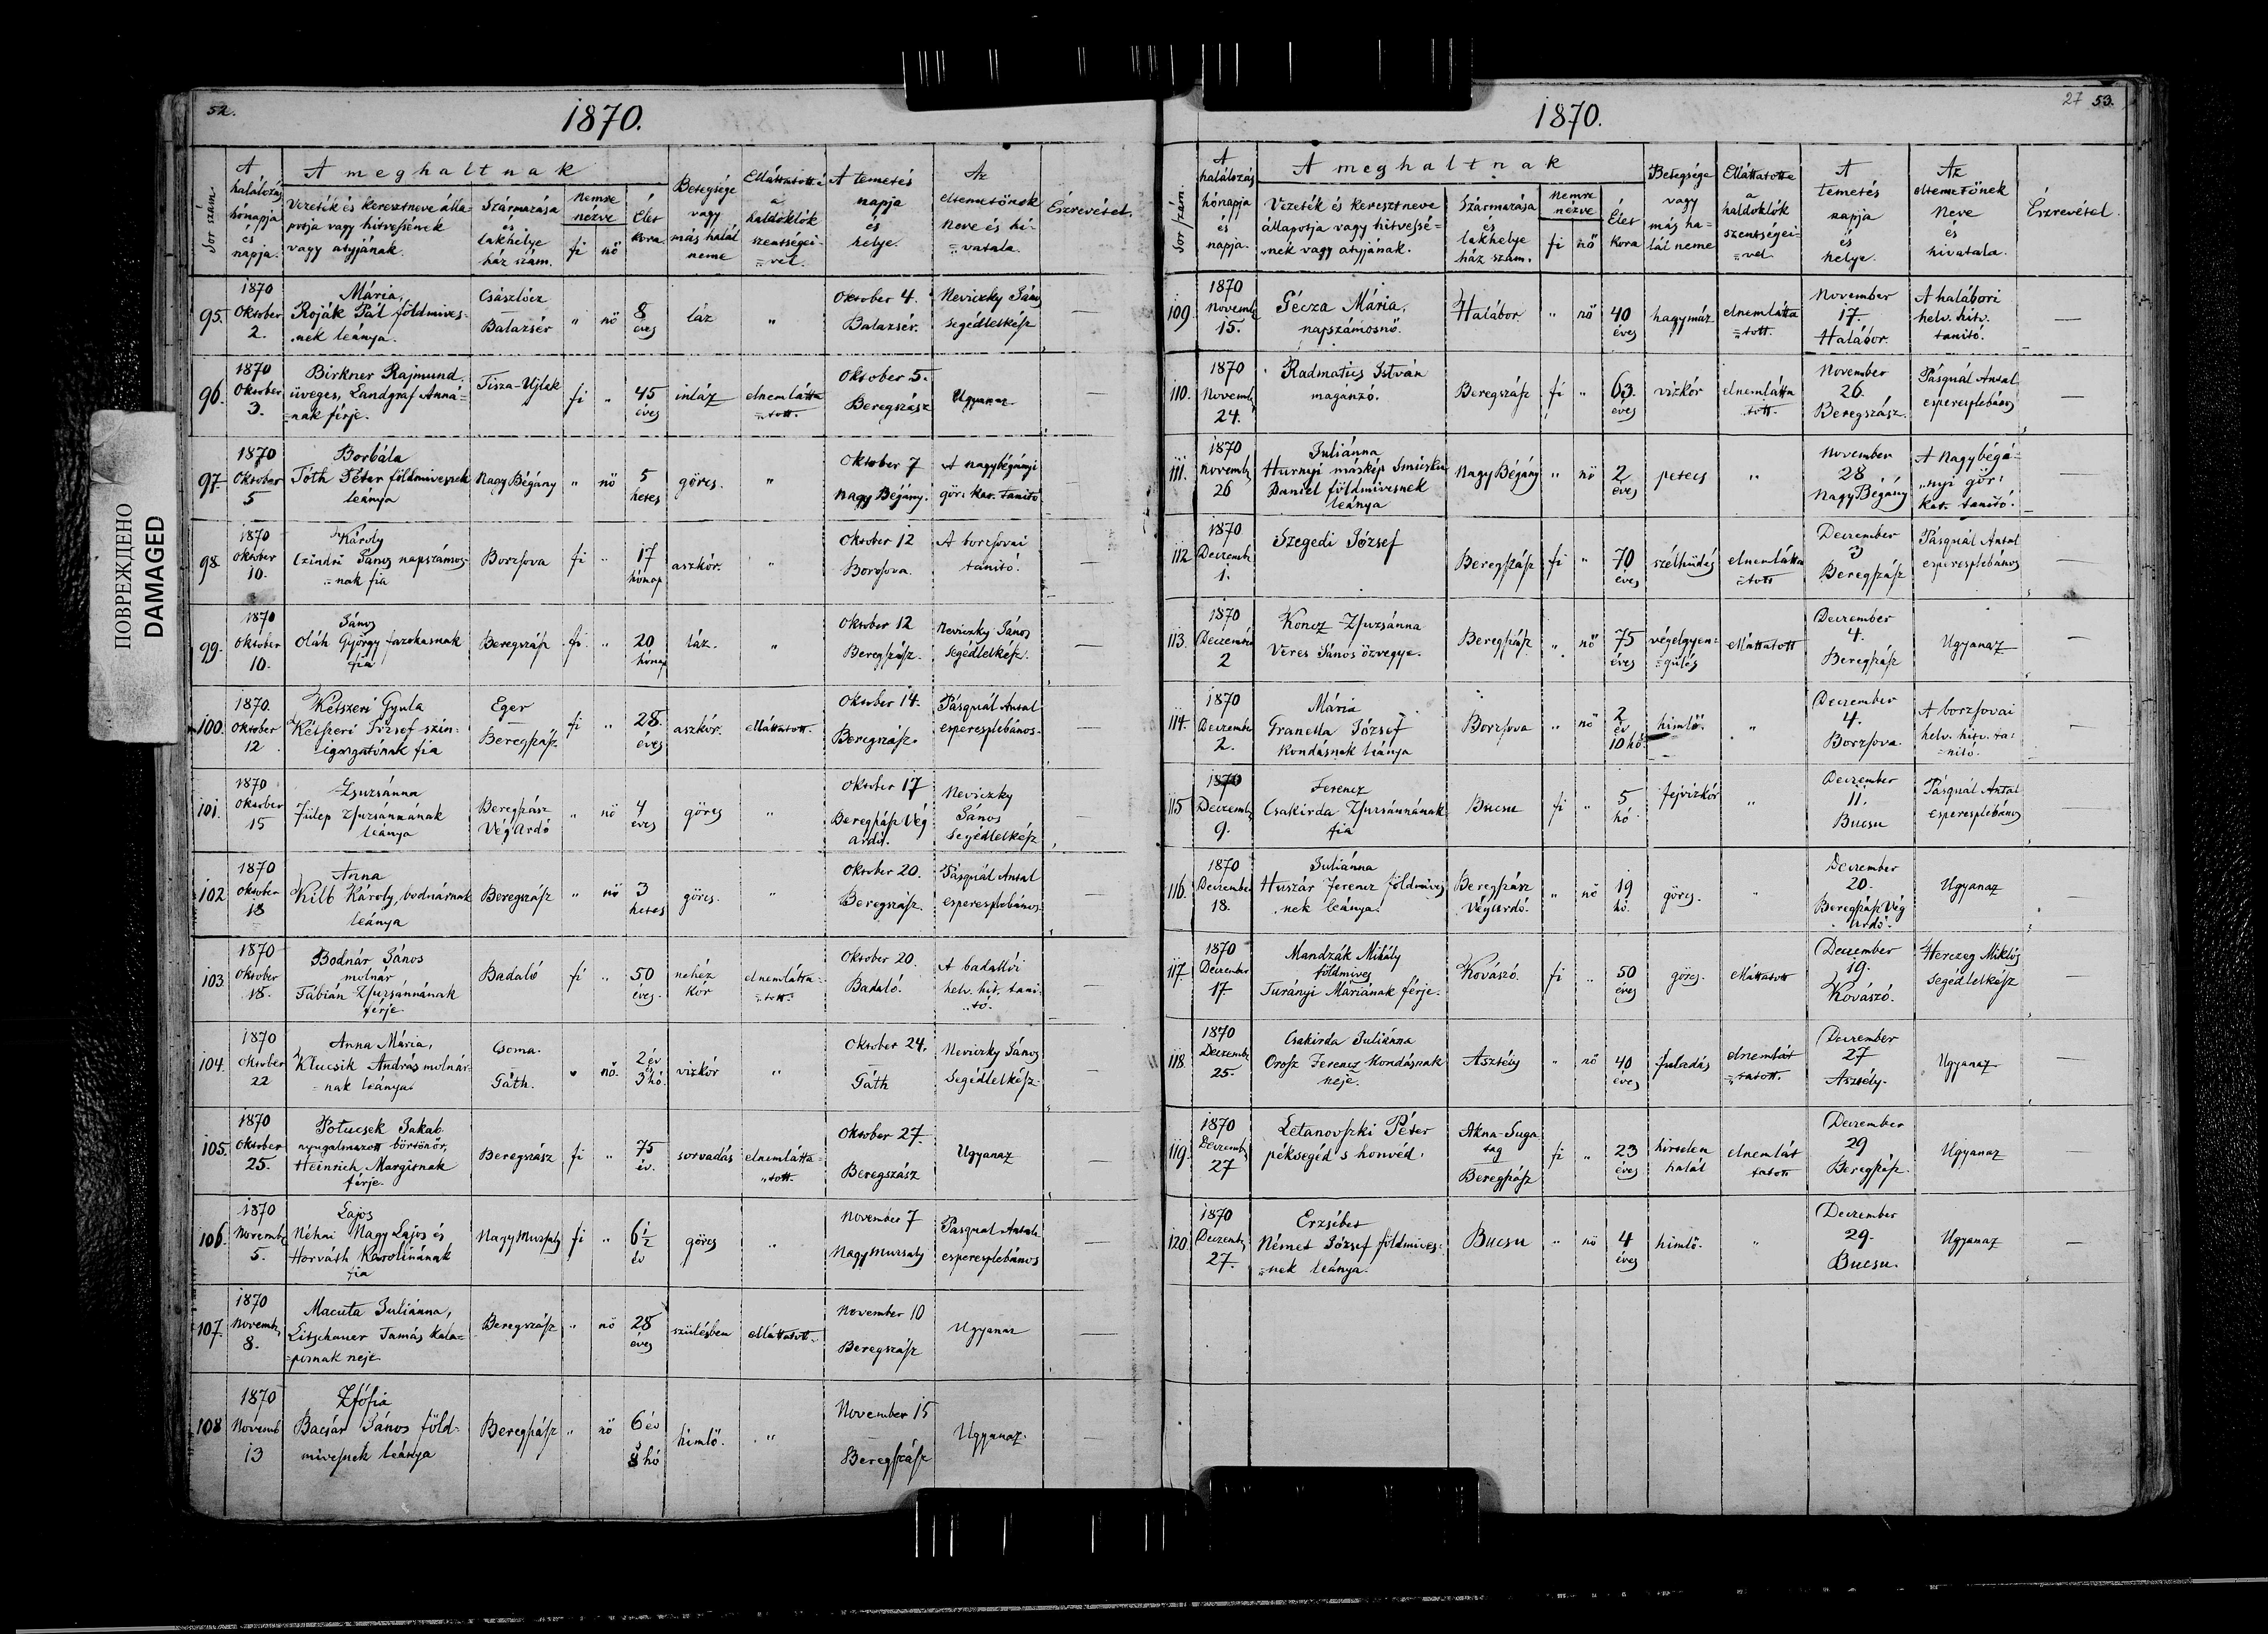 ПОВРЕЖДЕНО
DAMAGED
52.
1870.
Sor szám.
A halálozás hónapja és napja.
A meghaltnak
Vezeték és keresztneve álla-
potja vagy hitvesének
vagy atyjának.
Származása
és
lakhelye
ház szám.
Nemre
nézve
fi nő
Élet
kora
Betegsége
vagy
más halál
neme
Elláttatott é
a
haldoklók
szentségei-
=vel.
A temetés
napja
és
helye.
Az
eltemetőnek
neve és hi-
=vatala.
Észrevétel.
95. 1870 Oktober 2. Mária, Roják Pál földmives-nek leánya. Császlócz – Balazsér " nő 8 éves láz " Oktober 4. Balazsér. Neviczky János segédlelkész —
96. 1870 Oktober 3. Birkner Rajmund, üveges, Landgraf Anná=nak férje. Tisza-Ujlak fi " 45 éves inláz elnemlátta=tott. Oktober 5. Beregszász Ugyanaz —
97. 1870 Oktober 5 Borbála Tóth Péter földmivesnek leánya Nagy Bégány " nő 5 hetes görcs. " Oktober 7 Nagy Bégány. A nagybégányi gör. kat. tanitó —
98. 1870 Oktober 10. Károly Czindri János napszámos=nak fia Borzsova fi " 17 hónap aszkór. " Oktober 12 Borzsova. A borzsovai tanitó. —
99. 1870 Oktober 10. János Oláh György fazokasnak fia Beregszász fi. " 20 hónap láz. " Oktober 12 Beregszász. Neviczky János segédlelkész. —
100. 1870. Oktober 12 Kétszeri Gyula Kétszeri József szin=igazgatónak fia Eger – Beregszász fi " 28. éves aszkór. elláttatott. Oktober 14. Beregszász. Pásquál Antal esperesplebános. —
101. 1870 Oktober 15 Zsuzsánna Fülep Zsuzsánnának leánya Beregszász Vég Ardó " nő 4 éves görcs " Oktober 17 Beregszász Vég ardó. Neviczky János segédlelkész —
102 1870 Oktober 18 Anna Kilb Károly, bodnárnak leánya Beregszász " nő 3 hetes görcs. " Oktober 20. Beregszász. Pásquál Antal esperesplebános. —
103. 1870 Oktober 18. Bodnár János molnár Fábián Zsuzsánnának férje Badaló fi " 50 éves. nehéz kór elnemlátta=tott. Oktober 20. Badaló. A badallói helv. hit. tani=tó. —
104. 1870 Oktober 22 Anna Mária, Klucsik András molnár=nak leánya. Csoma. – Gáth. " nő. 2 év 3 hó. vizkór " Oktober 24. – Gáth Neviczky János segédlelkész. —
105. 1870 Oktober 25. Potucsek Jakab nyugalmazott börtönőr, Heinrich Margitnak férje. Beregszász fi " 75 év. sorvadás elnemlátta=tott. Oktober 27. Beregszász Ugyanaz —
106. 1870 Novemb. 5. Lajos Néhai Nagy Lajos és Horváth Karolinának fia Nagy Muzsaly fi " 6 1/2 év görcs " November 7 Nagy Muzsaly Pasqual Antal esperesplebános —
107. 1870 Novemb. 8. Macuta Juliánna, Litschauer Tamás kala=posnak neje Beregszász " nő 28 éves szülésben elláttatott. November 10 Beregszász Ugyanaz —
108 1870 Novemb 13 Zsófia Bacsár János föld-mivesnek leánya Beregszász " nő 6 év 8 hó himlő. " November 15 – Beregszász Ugyanaz.
27 53.
1870.
Sor szám.
A halálozás hónapja és napja.
A meghaltnak
Vezeték és keresztneve
állapotja vagy hitvessé=
=nek vagy atyjának.
Származása
és
lakhelye
ház szám.
Nemre
nézve
fi nő
Élet
kora
Betegsége
vagy
más ha-
lál neme
Elláttatotte
a
haldoklók
szentségei-
=vel
A
temetés
napja
és
helye.
Az
eltemetőnek
neve
és
hivatala.
Észrevétel.
109. 1870 Novemb. 15. Gécza Mária, napszámosnő. Halábor " nő 40 éves hagymáz elnemlátta=tott. November 17. Halábor. A halábori helv. hitv. tanitó. —
110. 1870 Novemb. 24. Radmatics István magánzó. Beregszász fi " 63. éves vizkór elnemlátta tott. November 26. Beregszász. Pásquál Antal esperesplebános —
111. 1870 Novemb. 26 Juliánna Hurnyi máskép Daniel földmivesnek leánya Nagy Bégány " nő 2 éves petecs " November 28 Nagy Bégány A Nagybégá=nyi gör. kat. tanitó. —
112. 1870 Decemb. 1. Szegedi József Beregszász fi " 70 éves szélhüdés elnemlátta=tott December 3 Beregszász Pásquál Antal esperesplebános —
113. 1870 Decemb. 2 Koncz Zsuzsánna Veres János özvegye. Beregszász " nő 75 éves végelgyen=gülés elláttatott December 4. Beregszász Ugyanaz —
114. 1870 December 2. Mária Granella József kondásnak leánya Borzsova " nő 2 év 10 hó himlő. " December 4. Borzsova. A borzsovai helv. hitv. ta=nitó. —
115 1870 Decemb. 9. Ferencz Csakirda Zsuzsánnának fia Bucsu fi " 5 hó. fejvizkór " December 11. Bucsu Pásquál Antal esperesplebános —
116. 1870 December 18. Juliánna Huszár Ferencz földmives nek leánya. Beregszász Végardó. " nő 19 hó. görcs. " December 20. Beregszász Vég Ardó. Ugyanaz —
117. 1870 December 17. Mandzák Mihály földmives Turányi Máriának férje. Kovászó. fi " 50 éves görcs. elláttatott December 19. Kovászó. Herczeg Miklós segédlelkész —
118. 1870 Decemb. 25. Csakirda Juliánna Orosz Ferencz kondásnak neje. Asztély " nő 40 éves fuladás elnemlát=tatott. December 27 Asztély. Ugyanaz —
119. 1870 Decemb. 27 Letanovszki Péter péksegéd s honvéd. Akna-Suga tag – Beregszász fi " 23 éves hirtelen halál elnemlát tatott December 29 Beregszász. Ugyanaz —
120. 1870 Decemb. 27. Erzsébet Német József földmives=nek leánya. Bucsu " nő 4 éves himlő. " December 29. Bucsu. Ugyanaz —